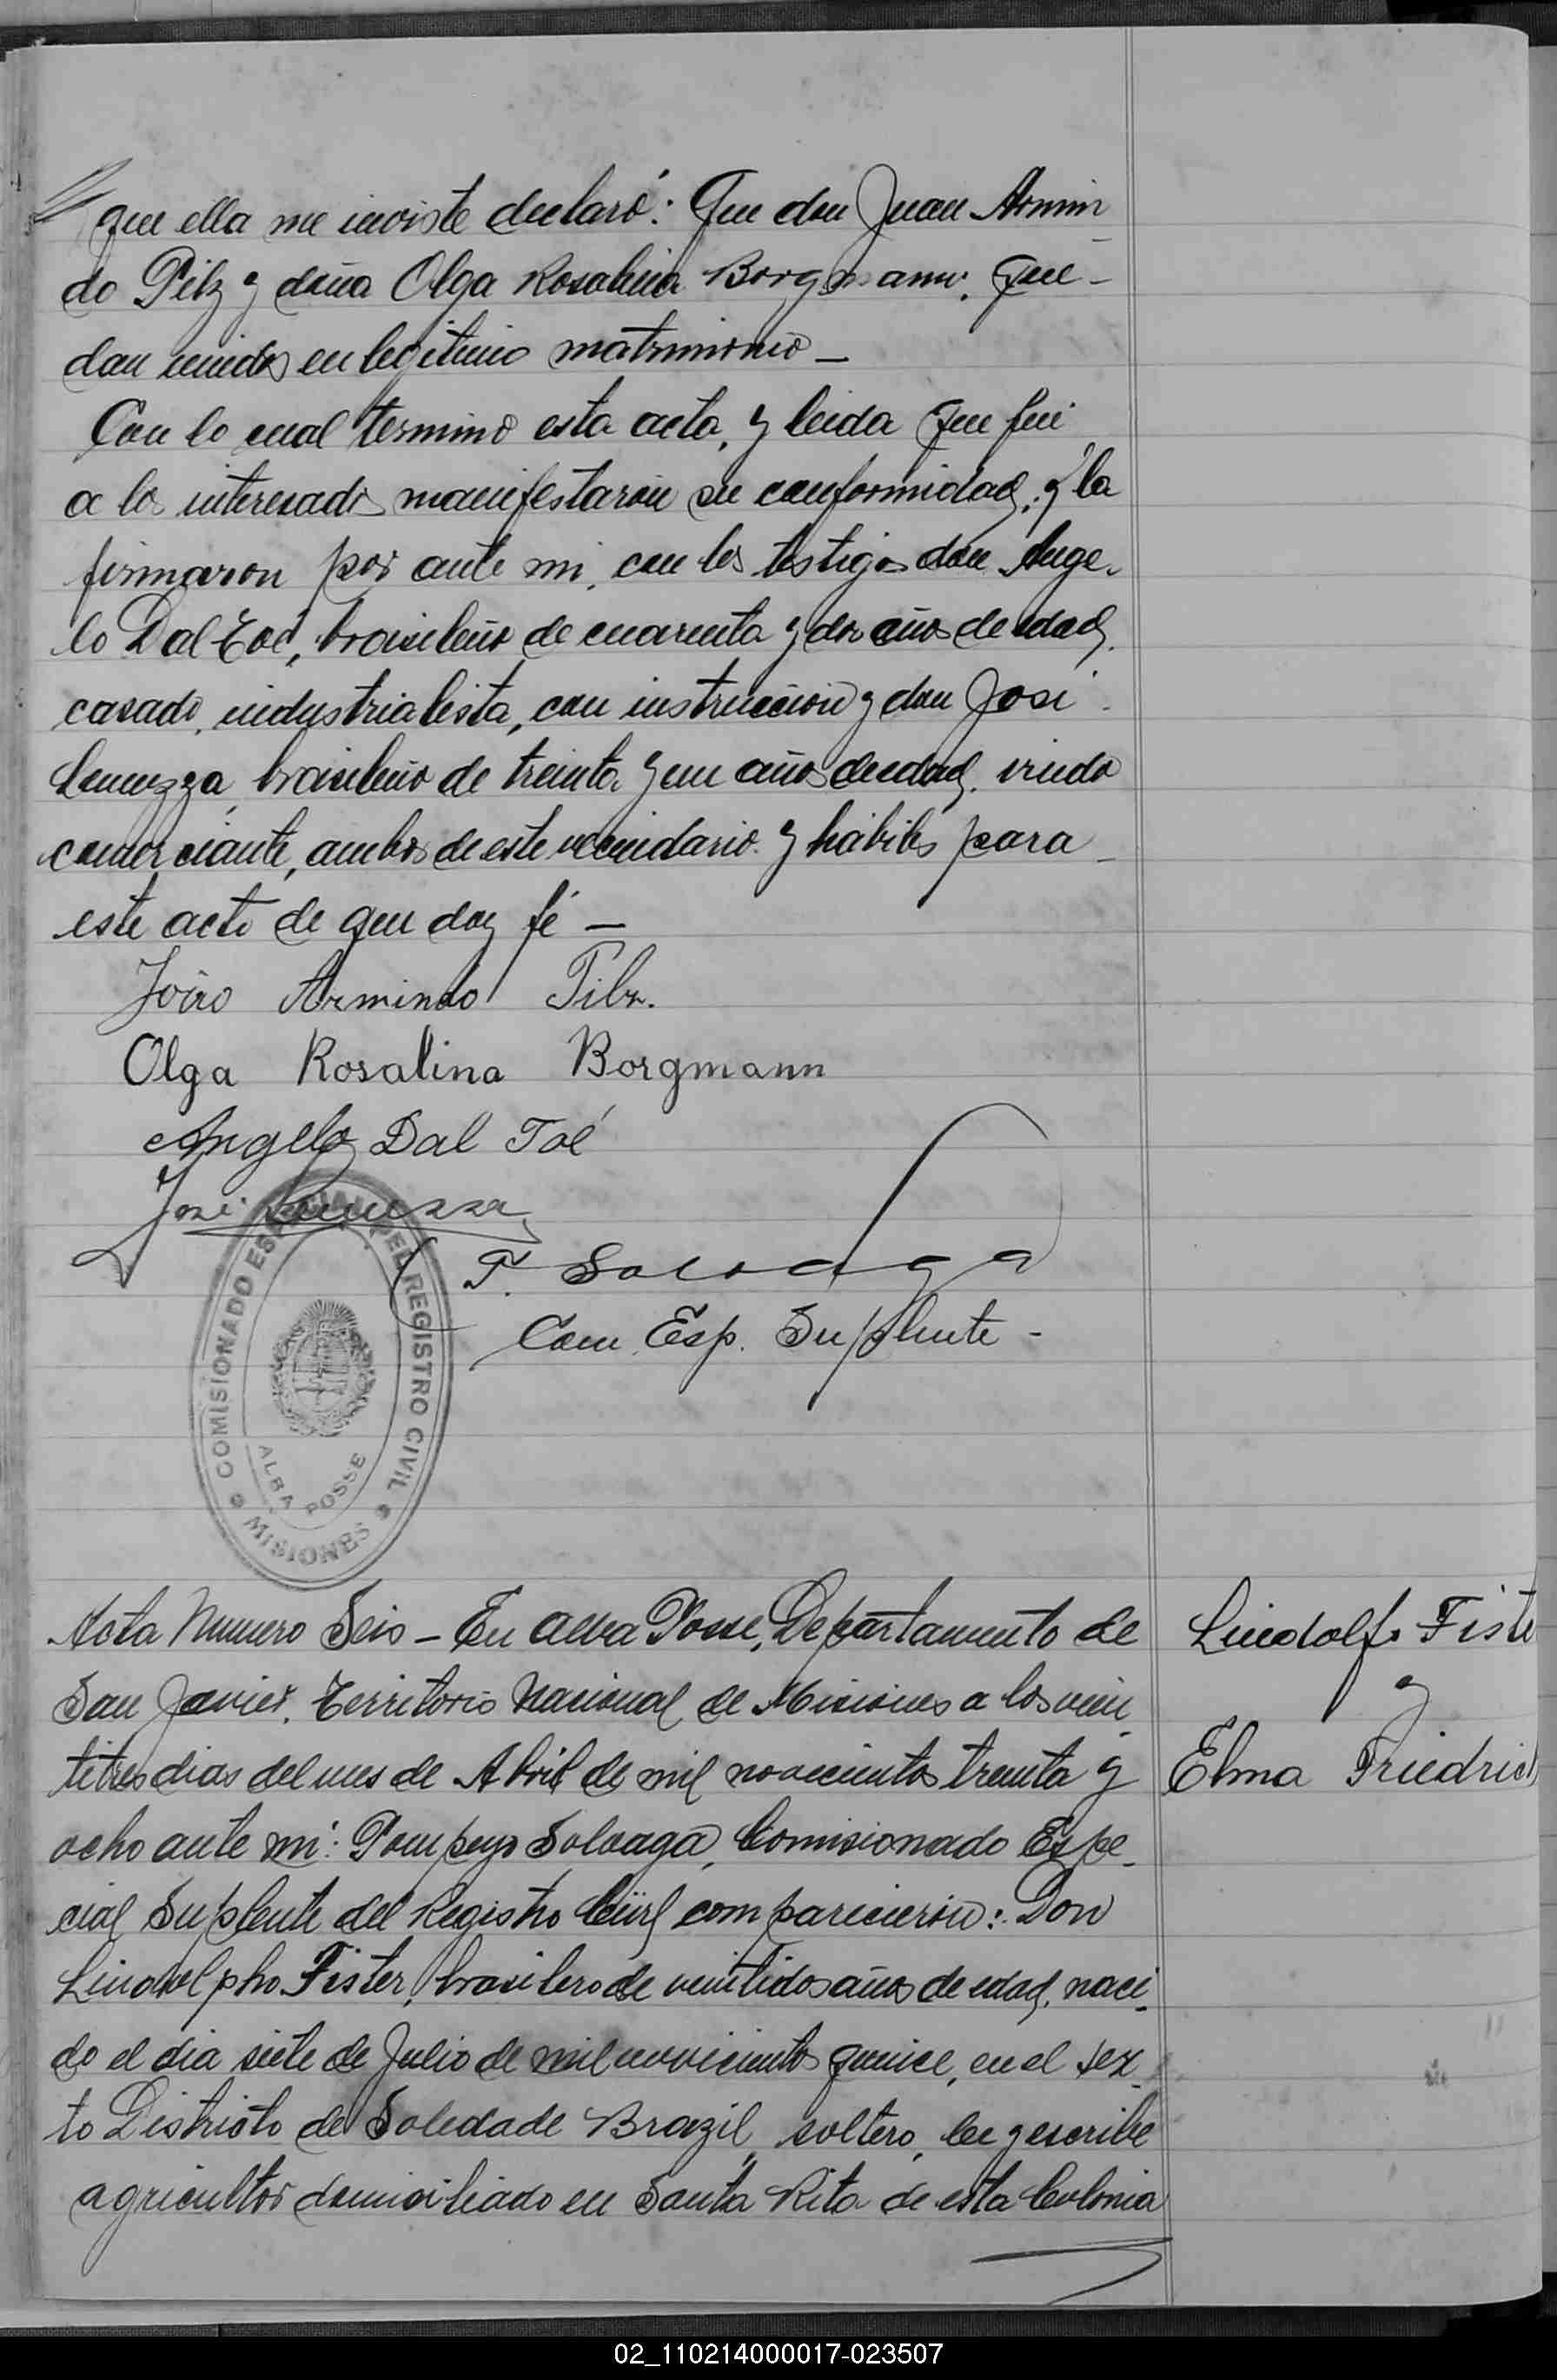 que ella me inviste declaró: Que don Juan Armin
do Pilz y doña Olga Rosalina Borgmann, que-
dan unidos en legitimo matrimonio —
Con lo cual terminó esta acta, y leida que fué
a los interesados manifestaron su conformidad, y la
firmaron por ante mi, con los testigos don Ange-
lo Dal Toé, brasileño de cuarenta y dos años de edad,
casado, industrialista, con instrucción y don José
brasileño de treinta y un años de edad, viudo
comerciante, ambos de este vecindario y hábiles para
este acto de que doy fé —
João Armindo Pilz.
Olga Rosalina Borgmann
Angelo Dal Toé
José
P. Soloaga
Com. Esp. Suplente -
COMISIONADO ESPECIAL DEL REGISTRO CIVIL
ALBA POSSE
MISIONES
Acta Numero Seis - En Alba Posse, Departamento de
San Javier, Territorio Nacional de Misiones a los vein
titres dias del mes de Abril de mil novecientos treinta y
ocho ante mi: Pompeyo Soloaga, Comisionado Espe-
cial Suplente del Registro Civil comparecieron: Don
Lindolpho Fister, brasilero de veintidos años de edad, naci-
do el dia siete de Julio de mil novecientos quince, en el sex-
to Districto de Soledade Brazil, soltero, lee y escribe
agricultor domiciliado en Santa Rita de esta Colonia
Lindolfo Fiste
y
Elma Friedrich
02_110214000017-023507